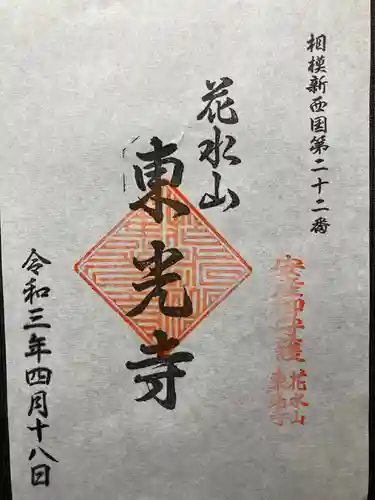 相模新西国第二十二番
花水山
東光寺
花水山
東光寺
令和三年四月十八日